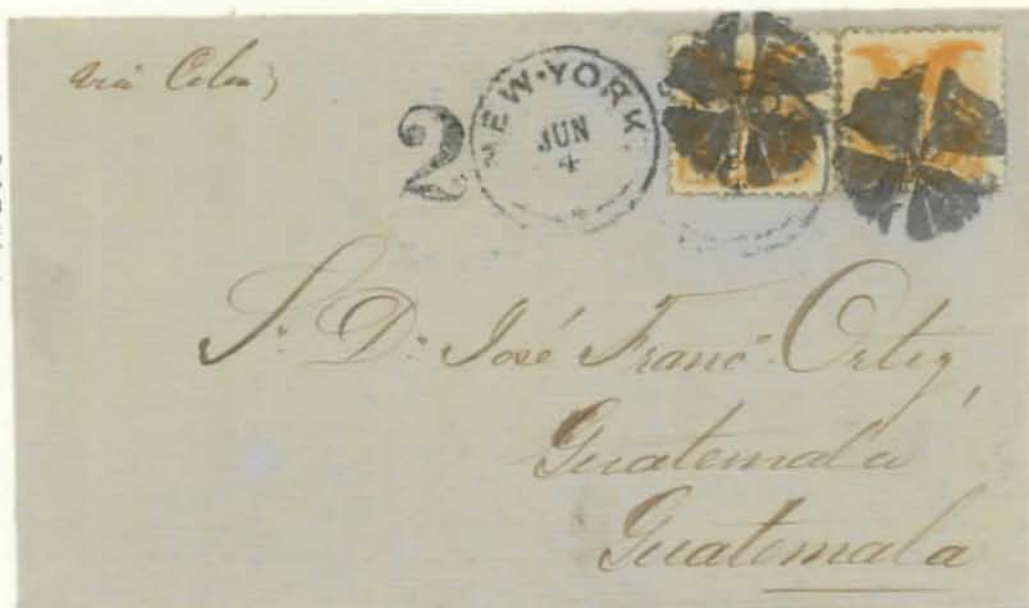 via Colon,
2
NEW-YORK.
JUN
4
Sr. Dn. José Franco. Ortiz,
Guatemala
Guatemala